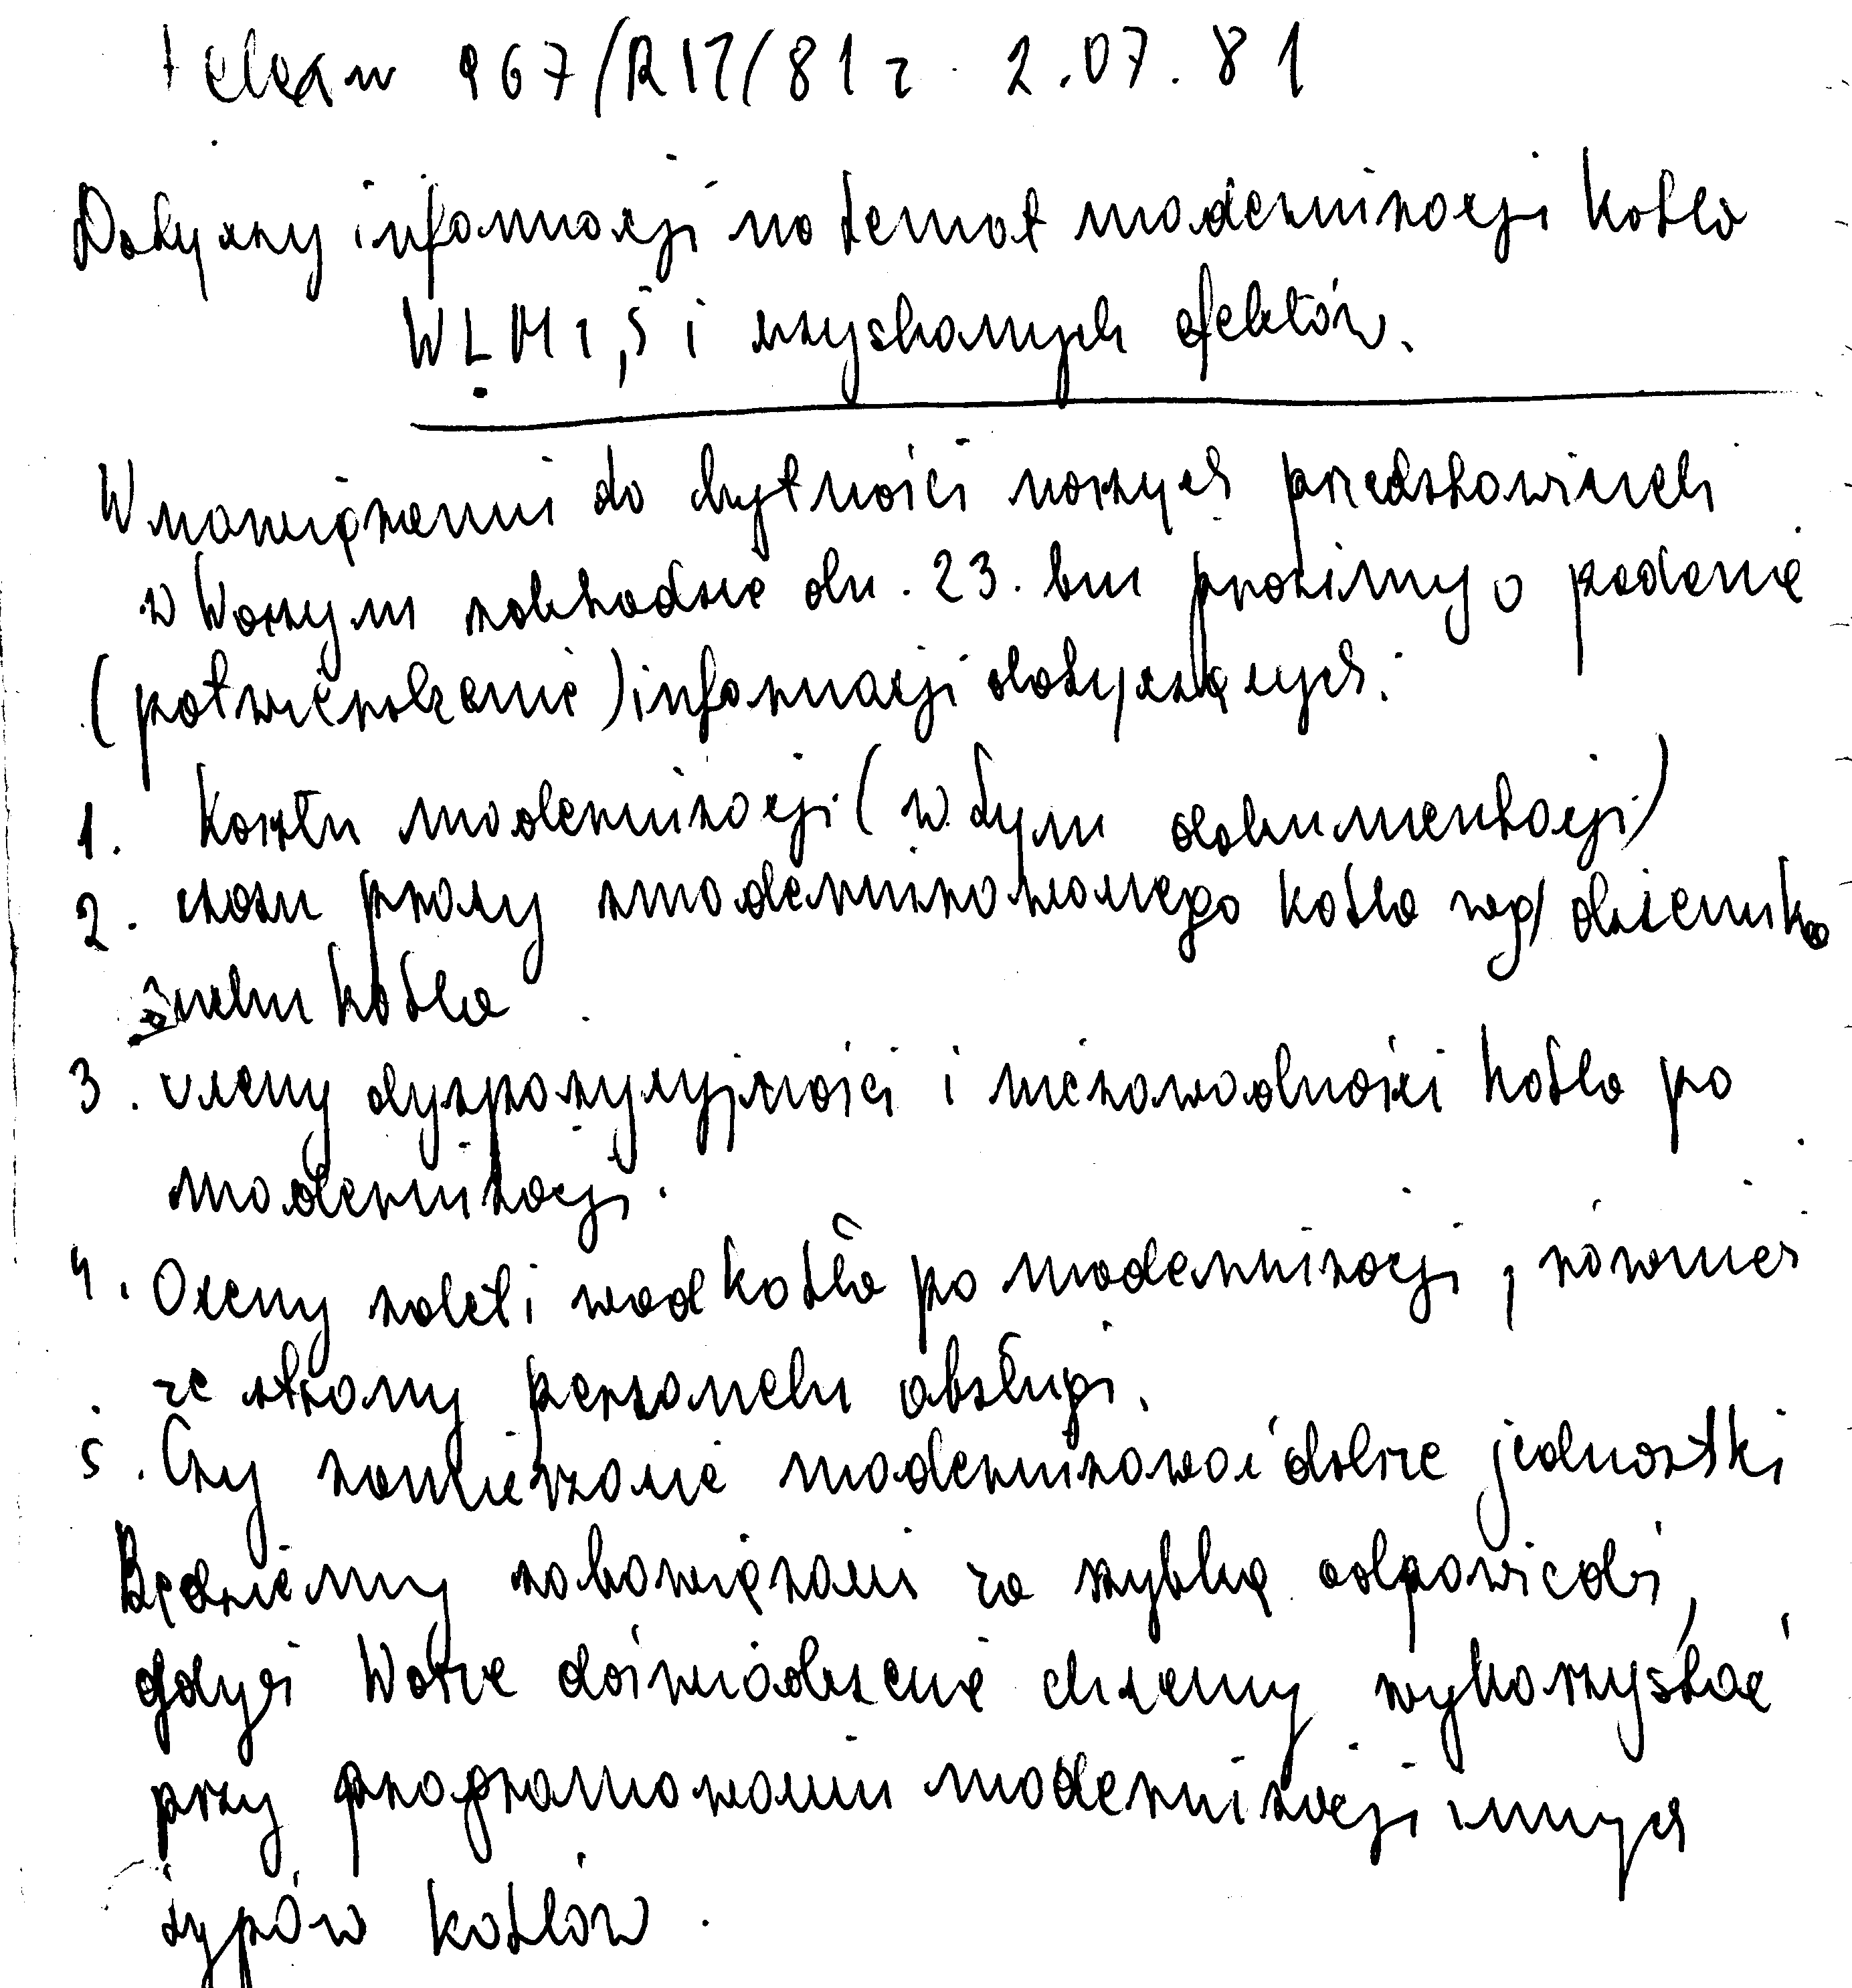 telex nr 967/RIT/81 z 2.07.81
Dotyczy informacji na temat modernizacji kotła
WLM 2,5 i uzyskanych efektów.
W nawiązaniu do bytności naszych przedstawicieli
w Waszym zakładzie dn. 23. bm prosimy o podanie
(potwierdzenie) informacji dotyczących:
1. Kosztu modernizacji (w tym dokumentacji)
2. czasu pracy zmodernizowanego kotła wg dziennika
ruchu kotła
3. oceny dyspozycyjności i niezawodności kotła po
modernizacji.
4. Oceny zalet i wad kotła po modernizacji, również
ze strony personelu obsługi.
5. Czy zamierzacie modernizować dalsze jednostki
Będziemy zobowiązani za szybką odpowiedź,
gdyż Wasze doświadczenie chcemy wykorzystać
przy programowaniu modernizacji innych
typów kotłów.